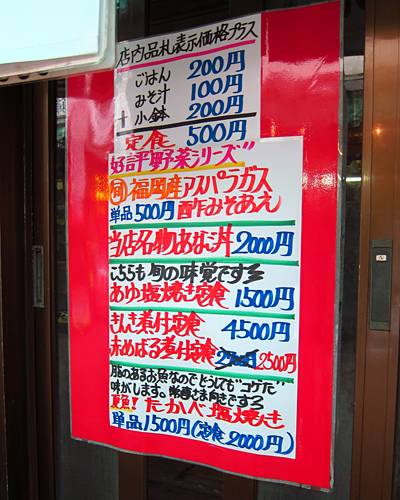 店内品札表示価格プラス
ごはん 200円
みそ汁 100円
+小鉢 200円
定食 500円
好評野菜シリーズ"
旬 福岡産アスパラガス
単品500円 酢みそあえ
当店名物あなご丼 2000円
こちらも旬の味覚です
あゆ塩焼き定食 1500円
きんき煮付定食 4500円
赤めばる煮付定食 2500円
脂のあるお魚なのでどうしても"コゲた"
味がします。常連さま向きです
夏魚! たかべ塩焼き
単品1500円(定食2000円)